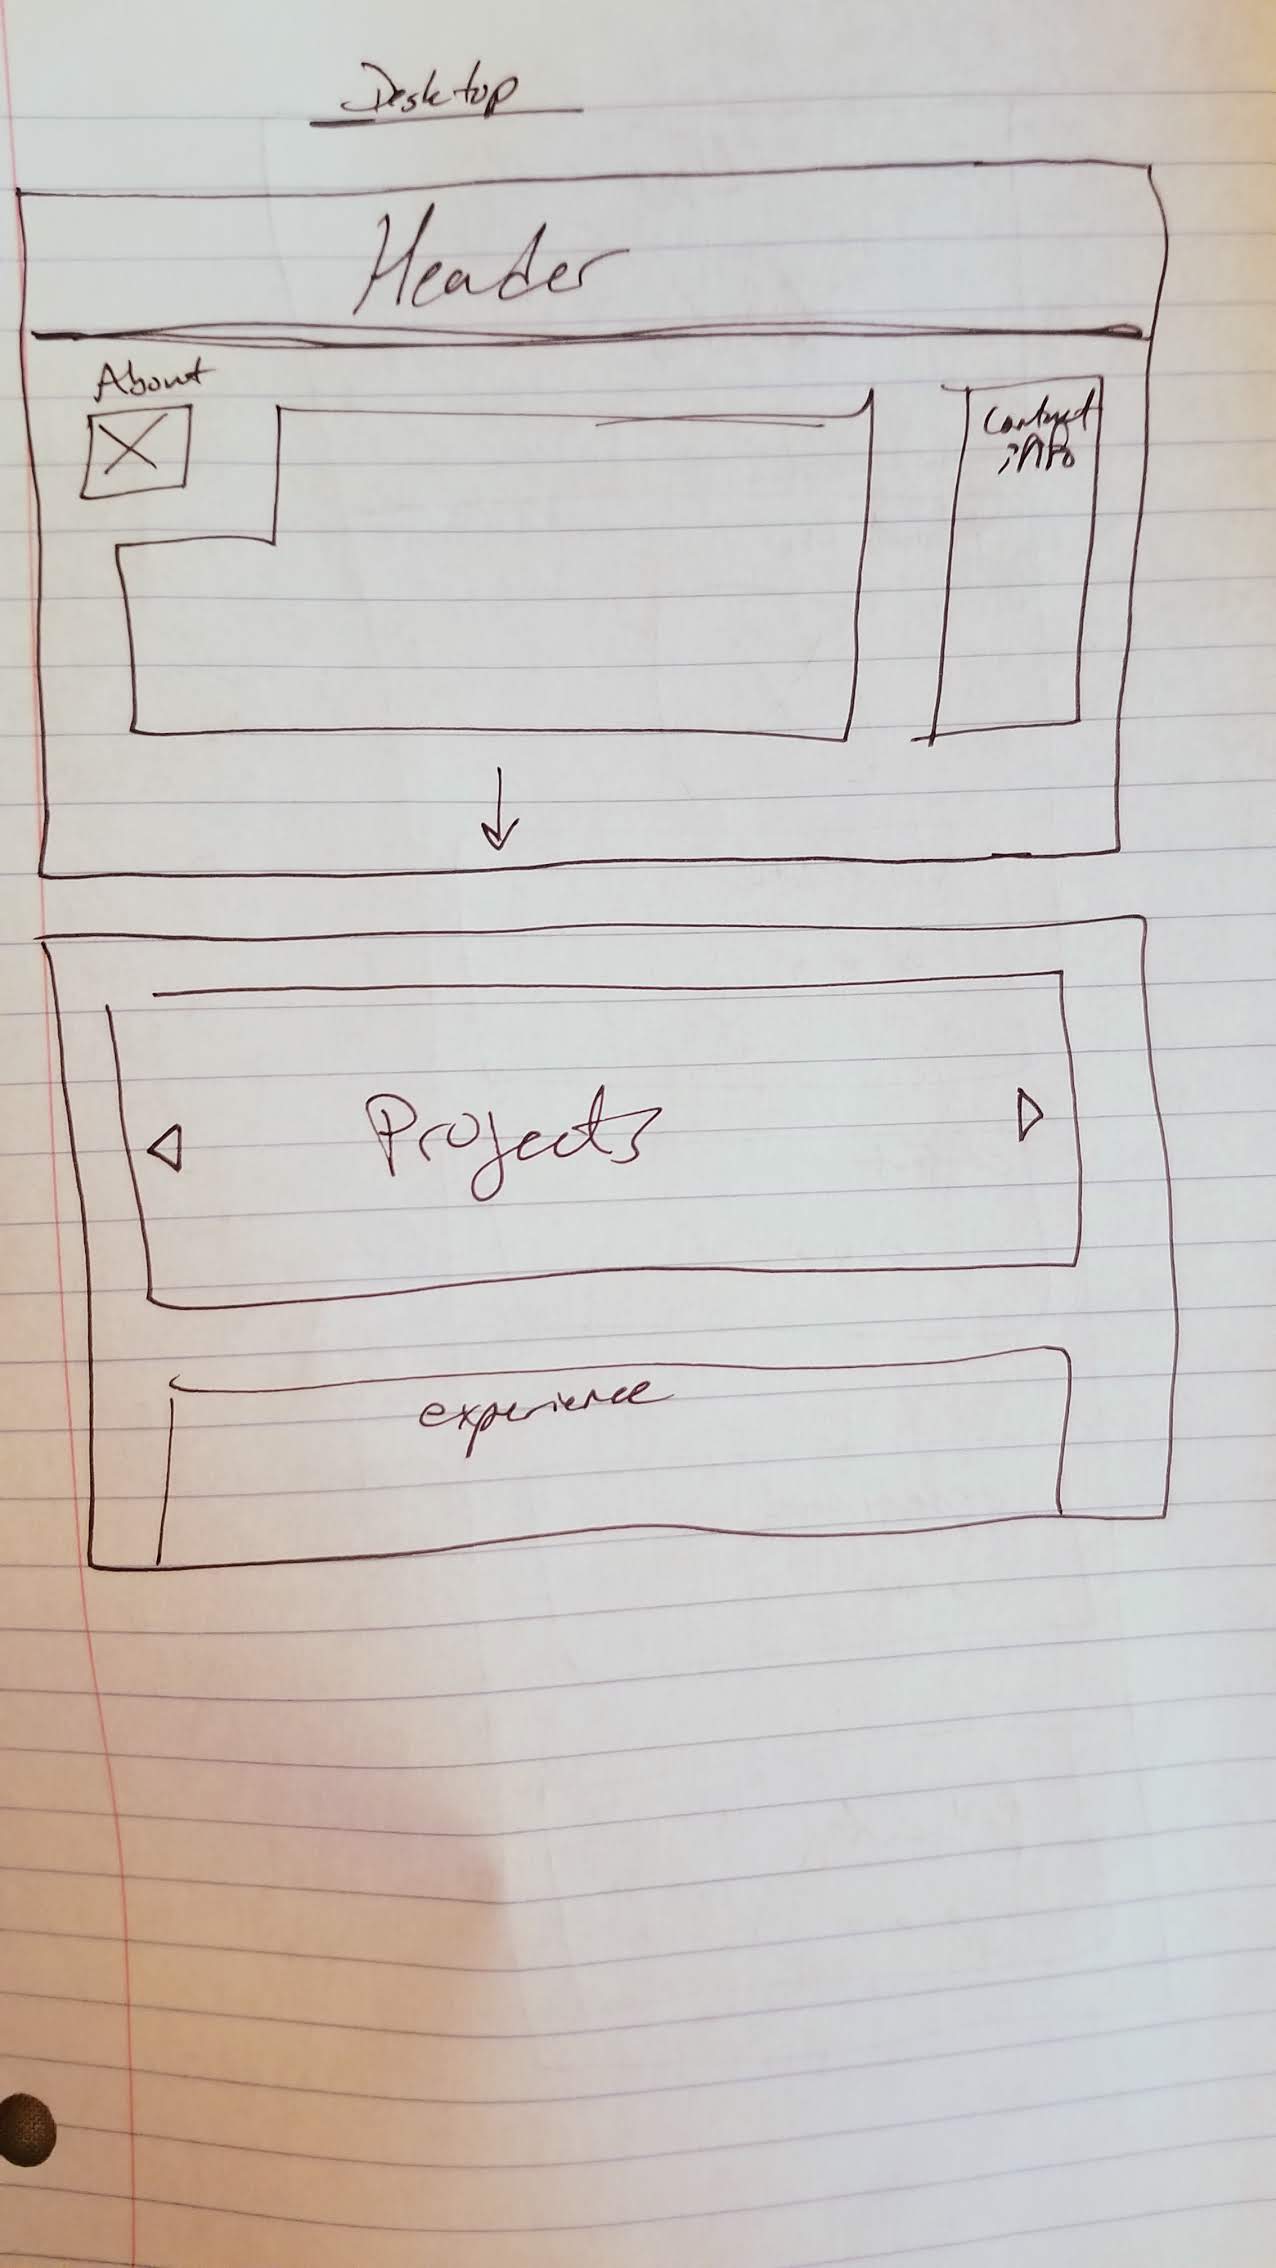 Desktop
Header
About
Contact
info
Projects
experience